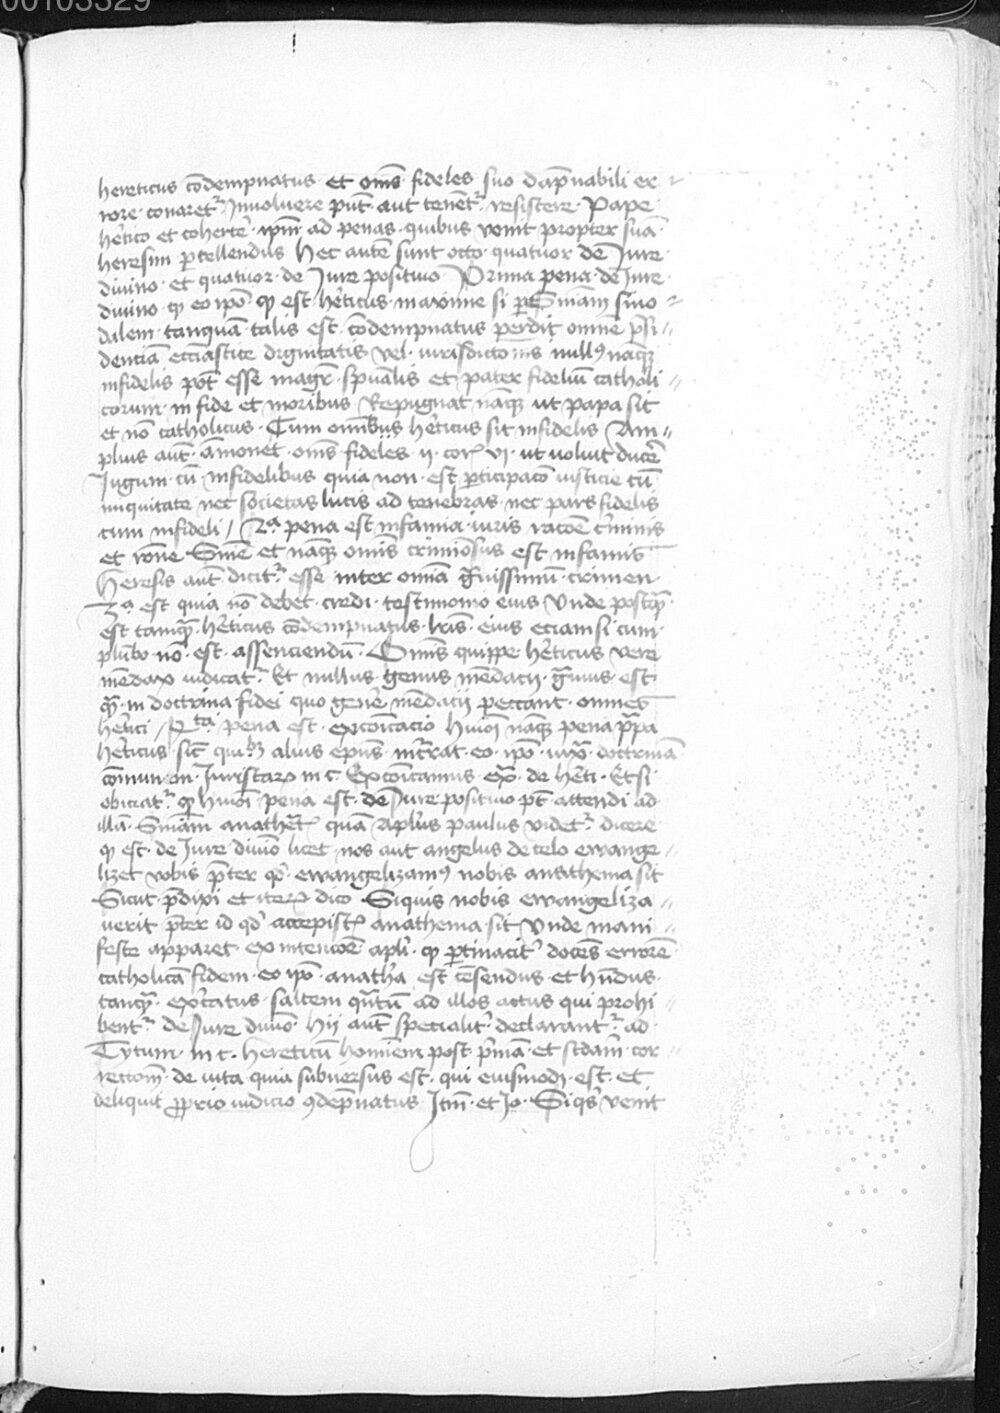 00103329
hereticus co̅dempnatus · et om̅s · fideles suo dap̅nabili er
rore · conaret᷑ Inuoluere pn̅t · aut tenēt᷑ resistere · Pape
he̅tico et coherte̅ · ip̅m ad penas · quibus venit propter suā ·
heresim p̱cellendus Hec autē sunt octo · quatuor de Iure ·
diuino · et quatuor · de Iure positiuo Prima pena · de Iure ·
diuino · ꝙ eo ip̅o · ꝙ est · he̅ticus · maxime si per S̅niam̅ sino
dalem · tanquā · talis est · co̅dempnatus perdit omne̅ p̅si
denciā ecc̅iastice dignitatis vel · iurisdictonis null9 nāqꝫ
infidelis pōt esse magr̅ · sp̅ualis et pater fideliū catholi
corum · in fide et moribus Repugnat nāqꝫ ut papa sit
et nō catholicus · Cum omībus he̅ticus sit infidelis Am
plius aut̅ · āmonet · om̅s fideles · ij · cor̅ vi · ut voluit duce̅
Iugum · cū Infidelibus quia non · est p̱ticipacō iusticie cū
iniquitate nec societas lucis ad tenebras · nec pars fidelis
cum infideli / 2ᵃ · pena est infamia · iuris racōe c̅minis
et rōne S̅nie̅ et nāqꝫ omīs criminōsus est infamis
Heresis aut̅ dicit᷑ · esse inter omīa g̅uissimū · crimen
3ᵃ · est quia nō debet · credi · testimonio eius Unde postq̅ᷓ
est tamq̅ᷓ he̅ticus co̅dempnatus · lr̅is · eius eciamsi cum ·
plu̅bo · nō · est · assenciendū · Omīs quippe he̅ticus vere
mēdax iudicat᷑ · Et nullus · genus mēdacij · g̅uius · est
qᷓ · in doctrina fidei quo gene̅ mēdacij peccant · omnes
he̅tici / 4ᵗᵃ pena est · excōicacio hui9oi̅ nāqꝫ pena p̅pa
he̅ticus · sit quibꝫ alius ep̅us · mc̅rat · eo · ip̅o · iuxᷓ · doctrinā
cōmunem · Iuristarꝝ in c · Excōicamus · exᷓ · de he̅ti · Etsi
obiciat᷑ · ꝙ hui9oi̅ pena est · de Iure · positiuo pt̅ attendi ad
illā · S̅niam anathe̅t · quā Ap̅lus paulus videt᷑ · dicere
ꝙ est · de Iure diuīo licet · nos aut angelus de celo ewange
lizet vobis p̅ter qď · ewangelizam9 nobis anathema sit
Sicut p̅dixi et iterꝝ dico Siquis nobis ewangeliza
uerit p̅ter id qď accepist᷑ anathema sit Unde mani
feste apparet ex intencōe ap̅li · ꝙ p̱tinacit᷑ docēs errorē
catholicā fidem · eo ip̅o · anath̅a est cēsendus et hn̅dus ·
tanq̅ᷓ · exc̅catus · saltem q̅ntū ad illos actus qui prohi
bent᷑ · de Iure diuīo · hij aut̅ specialit᷑ declarant᷑ · ad ·
Tytum · in c · Hereticū hoīem post p̅mā · et sc̅dam̅ · cor
rectom̅ · de vita · quia subuersus est · qui eiusmodi · est · et
deliquit p̅prio iudicio 9dep̅natus Itm̅ · et Jo · Siqs̅ venit